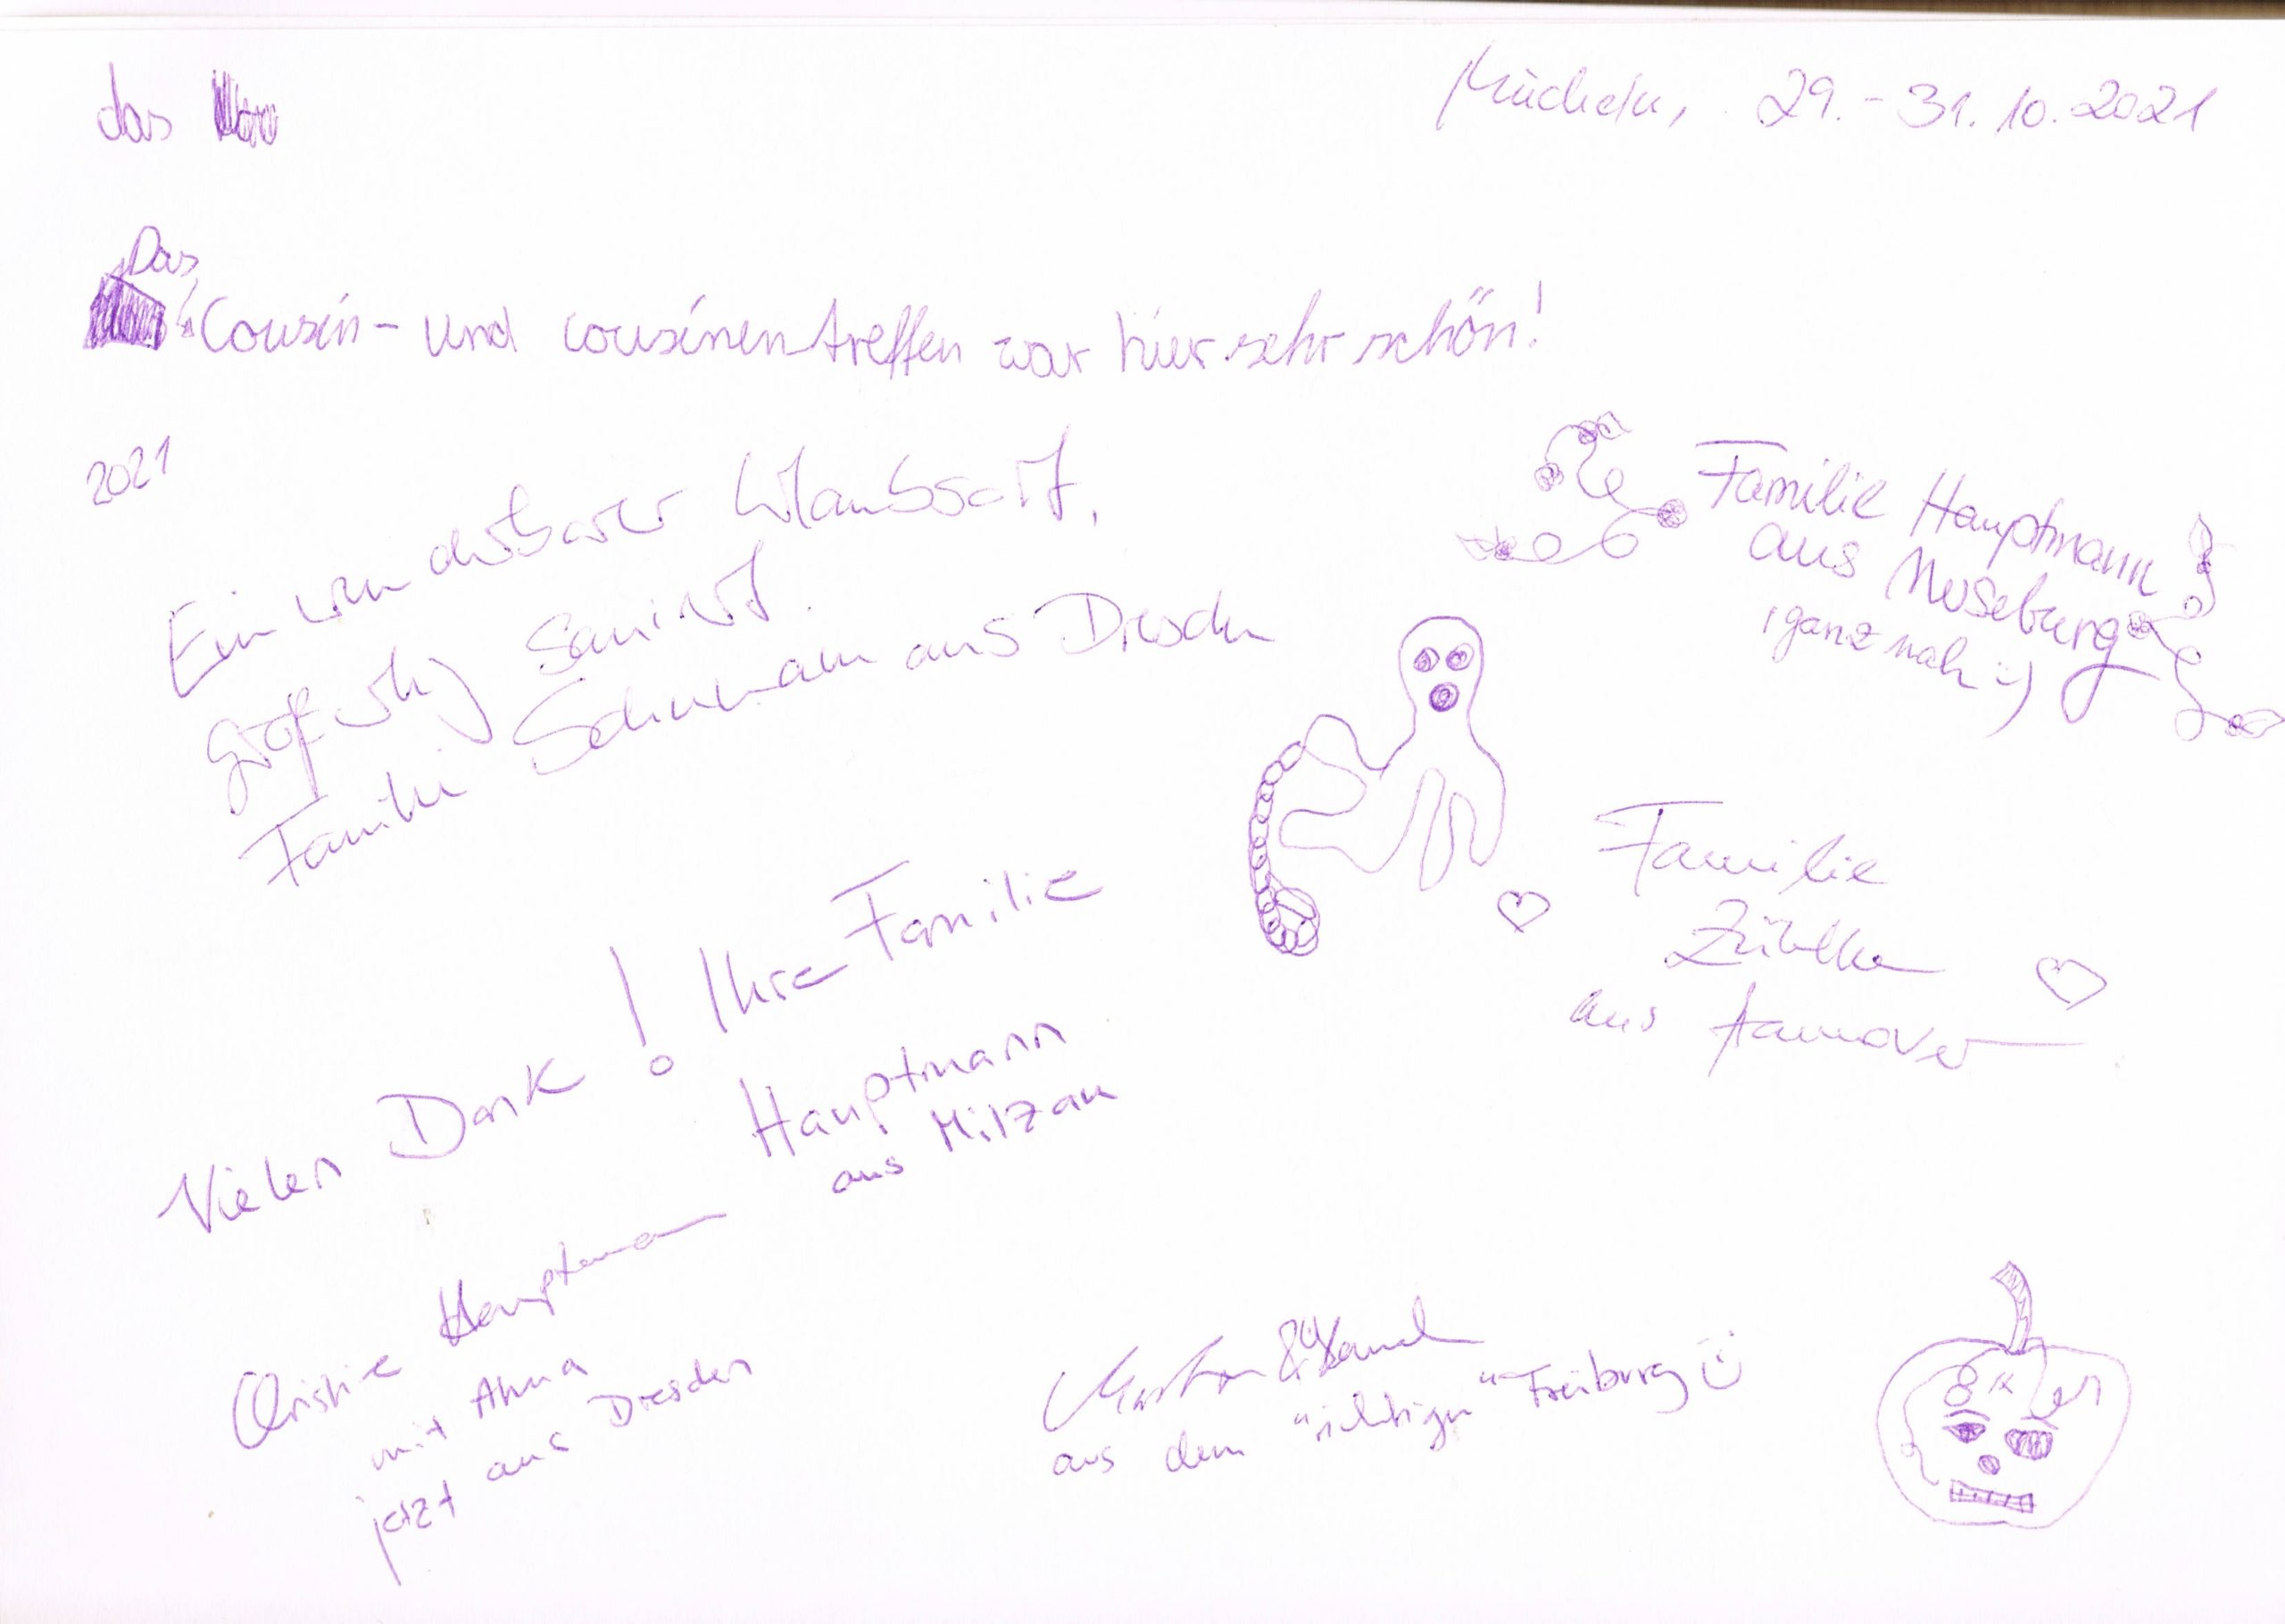 das
Mücheln, 29.-31.10.2021
Das
Cousin- und cousinentreffen war hier sehr schön!
2021
Ein wunderbarer Urlaubsort,
großartig saniert.
Familie Schumann aus Dresden
Familie Hauptmann
aus Merseburg
(ganz nah :-)
Familie
aus Hannover
Vielen Dank! Ihre Familie
Hauptmann
aus Milzau
Christine Hauptmann
mit Alma
jetzt aus Dresden
&
aus dem "richtigen" Freiburg